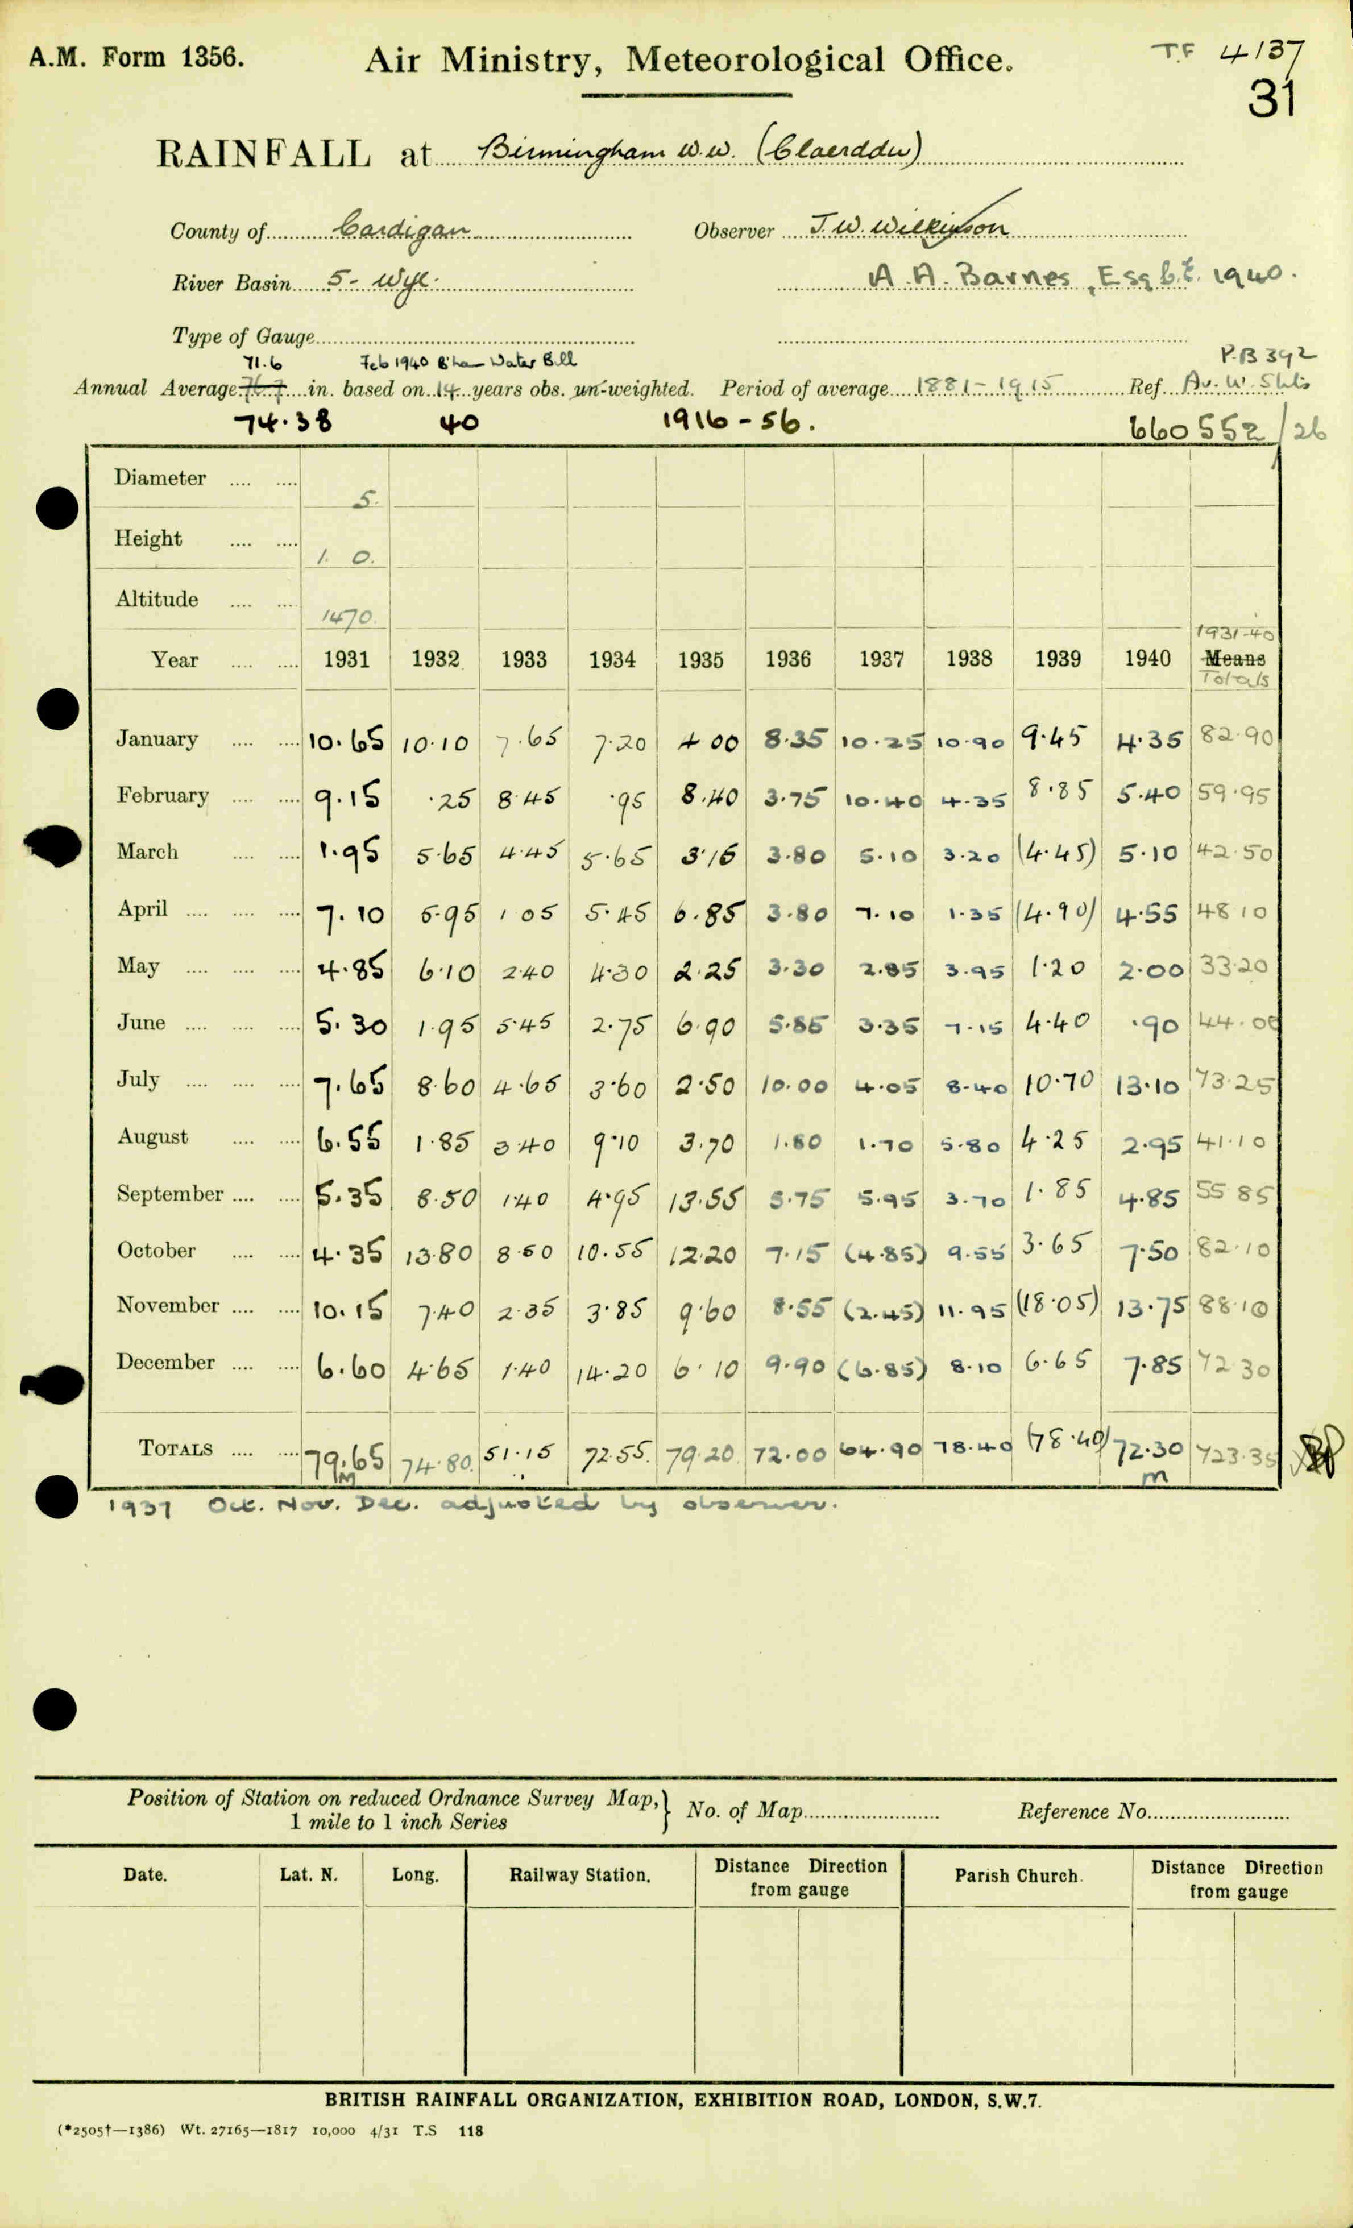 A.M. Form 1356. Air Ministry, Meteorological Office. T.F 4137
31
RAINFALL at Birmingham W.W. (Claerddu)
County of Cardigan Observer J.W. Wilkinson
River Basin 5 - Wye. A.A. Barnes, Esq C.E. 1940.
Type of Gauge
71.6 Feb 1940 B'ham Water Bill P.B 392
Annual Average 76.7 in. based on 14 years obs. un-weighted. Period of average 1881-1915 Ref. Av. W. Shts
74.38 40 1916-56. 660552/26
Diameter 5.
Height 1. 0.
Altitude 1470
1931-40
Year 1931 1932 1933 1934 1935 1936 1937 1938 1939 1940 Means
Totals
January 10.65 10.10 7.65 7.20 4.00 8.35 10.25 10.90 9.45 4.35 82.90
February 9.15 .25 8.45 .95 8.40 3.75 10.40 4.35 8.85 5.40 59.95
March 1.95 5.65 4.45 5.65 3.15 3.80 5.10 3.20 (4.45) 5.10 42.50
April 7.10 5.95 1.05 5.45 6.85 3.80 7.10 1.35 (4.90) 4.55 48.10
May 4.85 6.10 2.40 4.30 2.25 3.30 2.85 3.95 1.20 2.00 33.20
June 5.30 1.95 5.45 2.75 6.90 5.85 3.35 7.15 4.40 .90 44.00
July 7.65 8.60 4.65 3.60 2.50 10.00 4.05 8.40 10.70 13.10 73.25
August 6.55 1.85 3.40 9.10 3.70 1.80 1.70 5.80 4.25 2.95 41.10
September 5.35 8.50 1.40 4.95 13.55 5.75 5.95 3.70 1.85 4.85 55.85
October 4.35 13.80 8.50 10.55 12.20 7.15 (4.85) 9.55 3.65 7.50 82.10
November 10.15 7.40 2.35 3.85 9.60 8.55 (2.45) 11.95 (18.05) 13.75 88.10
December 6.60 4.65 1.40 14.20 6.10 9.90 (6.85) 8.10 6.65 7.85 72.30
TOTALS 79.65 74.80 51.15 72.55 79.20 72.00 64.90 78.40 (78.40) 72.30 723.35
M m
1937 Oct. Nov. Dec. adjusted by observer.
Position of Station on reduced Ordnance Survey Map,
1 mile to 1 inch Series } No. of Map Reference No.
Date. Lat. N. Long. Railway Station. Distance Direction from gauge Parish Church. Distance Direction from gauge
BRITISH RAINFALL ORGANIZATION, EXHIBITION ROAD, LONDON, S.W.7.
(*2505†—1386) Wt. 27165—1817 10,000 4/31 T.S 118